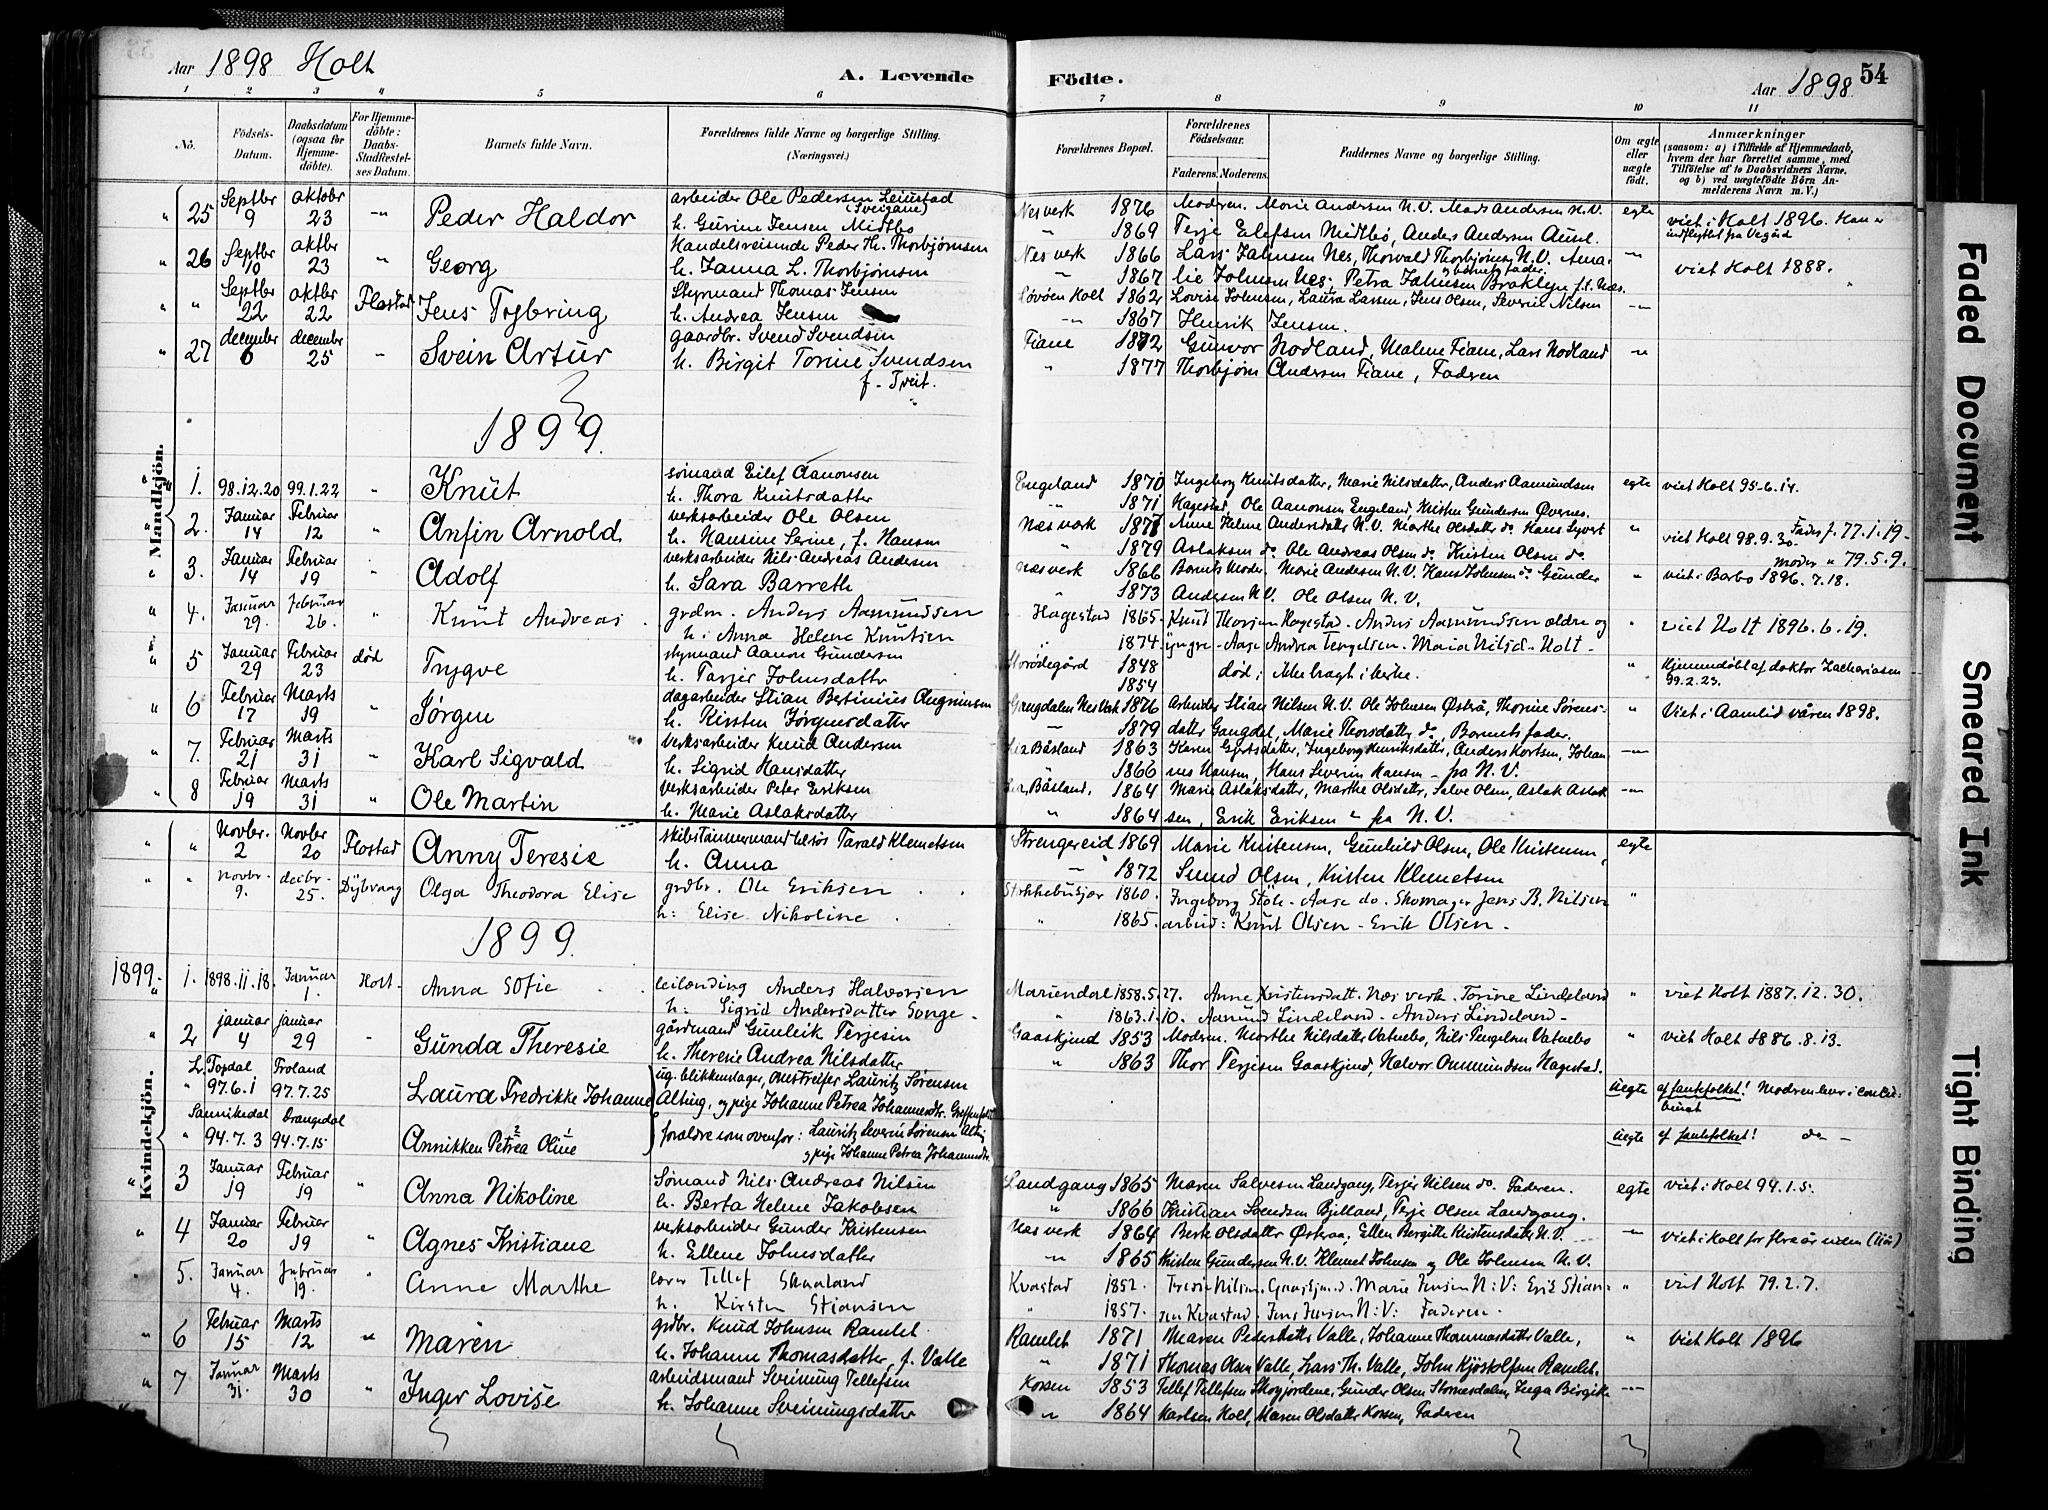 Aar 1898 Holt
A. Levende Födte.
Aar 1898
54
1 2 3 4 5 6 7 8 9 10 11
No. Födsels-Datum. Daabsdatum (ogsaa for Hjemme-döbte). For Hjemme-döbte: Daabs-Stadfæstel-ses Datum. Barnets fulde Navn. Forældrenes fulde Navne og borgerlige Stilling. (Næringsvei.) Forældrenes Bopæl. Forældrenes Födselsaar. Faderens. Moderens. Faddernes Navne og borgerlige Stilling. Om ægte eller uægte födt. Anmærkninger (saasom: a) i Tilfælde af Hjemmedaab, hvem der har forrettet samme, med Tilföielse af to Daabsvidners Navne. og b) ved uægtefödte Börn An-melderens Navn m. V.)
Mandkjön.
25 Septbr 9 oktober 23 Peder Haldor arbeider Ole Pedersen (Sveigane) Nesverk 1876 Modren. Marie Andersen N.V. Mads Andersen N.V. egte viet i Holt 1896. Han er
h. Gurine Jensen Midtbø " 1869 Terje Elefsen Midtbø, Anders Andersen indflyttet fra Vegusd
26 Septbr 10 oktbr 23 Georg Handelsreisende Peder Th. Thorbjørnsen Nes verk 1866 Lars Johnsen Nes, Thorvald Thorbjørnsen N.V. Ama- viet Holt 1888.
h. Janna L. Thorbjørnsen 1867 lie Johnsen Nes, Petra Johnsen Broklyn f.t. Næs. barnets fader.
" Septbr 22 oktbr 22 Flostad Jens Tybring Styrmand Thomas Jensen Løvøen Holt 1862 Lovise Johnsen, Laura Larsen, Jens Olsen, Severin Nilsen
h. Andrea Jensen 1867 Henrik Jensen.
27 december 6 december 25 Svein Artur gaardbr. Svend Svendsen Fiane 1872 Gunvor Hodland, Malene Fiane, Lars Hodland
h. Birgit Torine Svendsen " 1877 Thorbjørn Andersen Fiane, Faderen
f. Tveit.
1899.
1. 98.12.20 99.1.22 Knut sømand Eilef Aanonsen Engeland 1870 Ingeborg Knutsdatter, Marie Nilsdatter, Anders Aamundsen egte viet Holt 95-6.14.
h. Thora Knutsdatter " 1871 Hagestad, Ole Aanonsen Engeland, Kristen Gundersen Øvernes.
2. Januar 14 Februar 12 Anfin Arnold verksarbeider Ole Olsen Næs værk 1877 Anne Helene Andersdatter N.V. Marthe Olsdatter do. Hans Syvert viet Holt 98.9.30 Fader f. 77.1.19.
h. Hansine Serine, f. Hansen " 1879 Aslaksen do. Ole Andreas Olsen do. Kristen Olsen do moder " 79.5.9.
3. Januar 14 Februar 19 Adolf verksarbeider Nils Andreas Andersen Næsverk 1866 Barnets Moder. Marie Andersen N.V. Hans Johnsen do. Gunder viet i Barbo 1896.7.18.
h. Sara Barreth 1873 Andersen N.V. Ole Olsen N.V.
4. Januar 29. Februar 26. Knut Andreas grdm. Anders Aamundssen Hagestad 1865. Knut Thorsen Hagestad - Anders Aamundssen ældre og viet Holt 1896.6.19.
h. Anna Helene Knutsen 1874 yngre - Aase Andrea Tengelsen - Maria Nilsd - Holt -
5 Januar 29 Februar 23 død Trygve styrmand Aanon Gundersen 1848 død; ikke bragt i kirke. Hjemmedøbt af doktor Zachariasen
h. Tarjer Johnsdatter 1854 99.2.23.
6 Februar 17 Marts 19 Jørgen dagarbeider Stian Bertinius Gangdalen Nes Verk 1876 Arbeider Stian Nilsen N.V. Ole Johnsen Østerå, Thorine Sørens- Viet i Aamlid våren 1898.
h. Kirsten Jørgensdatter 1879 datter Gangdal, Marie Thorsdatter do, Barnets fader.
7. Februar 21 Marts 31 Karl Sigvald verksarbeider Knud Andersen Lia Båsland 1863 Karen Gjertsdatter, Ingeborg Henriksdatter, Anders Kortsen, Johan-
h. Sigrid Hansdatter 1866 nes Hansen, Hans Severin Hansen - fra N.V.
8 Februar 19 Marts 31 Ole Martin verksarbeider Peter Eriksen Lia, Båsland, 1864 Marie Aslaksdatter, Marthe Olsdatter, Salve Olsen, Aslak Aslak
h. Marie Aslaksdatter " 1864 sen, Erik Eriksen - fra N.V.
Novbr. 2 Novbr 20 Flostad Anny Teresie skibstømmermand Tarald Klemetsen Strengereid 1869 Marie Kristensen, Gunhild Olsen, Ole Kristensen, egte
h. Anna 1872 Svend Olsen, Kristen Klemetsen
novbr. 9. decbr. 25. Dybvaag Olga Theodora Elise grdbr. Ole Eriksen 1860. Ingeborg Støle - Aase do. Skomager Jens B. Nilsen "
h: Elise Nikoline " 1865. arbeid: Knut Olsen - Erik Olsen -
1899.
Kvindekjön.
1899. 1. 1898.11.18. Januar 1. Holt Anna Sofie leilænding Anders Halvorsen Mariendal 1858.5.27. Anne Kristensdatt. Næs verk - Torine Lindeland " viet Holt 1887.12.30.
h. Sigrid Andersdatter Songe - " 1863.1.10. Aamund Lindeland - Anders Lindeland -
2 januar 4 januar 29 Gunda Theresie gårdmand Gunleik Terjesen Gaaskjend 1853 Moderen. Marthe Nilsdatter Vatnebo, Nils Tengelsen Vatnebo " viet Holt 1886.8.13.
h. Theresie Andrea Nilsdatter " 1863 Thor Terjesen Gaaskjend, Halvor Ommundsen Hagestad.
L. Topdal 97.6.1 Froland 97.7.25 Laura Fredrikke Johanne ug. blikkenslager, omstreifer Lauritz Sørensen Uegte af fantefolket! Modren
Alting, og pige Johanne Petrea Johannesdtr.
Sannikedal 94.7.3 Drangedal 94.7.15 Annikken Petrea Oline forældre som ovenfor: Lauritz Severin Sørensen Alting Uegte af fantefolket! do -
og pige Johanne Petrea Johannesdtr.
3 Januar 19 Februar 19 Anna Nikoline Sømand Nils Andreas Nilsen Landgang 1865 Maren Salvesen Landgang, Terjer Nilsen do. Faderen. egte viet i Holt 94.1.5.
h. Berta Helene Jakobsen " 1866 Kristian Svendsen Bjelland, Terje Olsen Landgang.
4 Januar 20 Februar 19 Agnes Kristiane verksarbeider Gunder Kristensen Næs verk 1864 Berte Olsdatter Østeraa, Ellen Birgitte Kristensdatter N.V. viet i Holt for flere år siden
h. Ellene Johnsdatter 1865 Kristen Gundersen N.V. Klemet Johnsen og Ole Johnsen N.V.
5. Januar 4. Februar 19. Anne Marthe lærer Tellef Skaaland Kvastad 1852. Nilsen. Gaaskjend. Marie Jensen N:V: Erik Stian- " viet Holt 79.2.7.
h. Kirsten Stiansen " 1857. sen Kvastad. Jens Jensen N:V: Faderen.
6 Februar 15 Marts 12 Maren grdbr. Knud Johnsen Ramlet Ramlet 1871 Maren Pedersdatter Valle, Johanne Thommasdatter Valle, " Viet Holt 1896
h. Johanne Thomasdatter, f. Valle " 1871 Thomas Olsen Valle, Lars Th. Valle, John Kjøstolfsen Ramlet.
7 Januar 31. Marts 30 Inger Lovise arbeidsmand Sveinung Tellefsen Korsen 1853 Tellef Tellefsen Skogjordene, Gunder Olsen Inga Birgitte
h. Johanne Sveinungsdatter 1864 Karlsen Holt, Maren Olsdatter Korsen, Faderen
Faded Document
Smeared Ink
Tight Binding